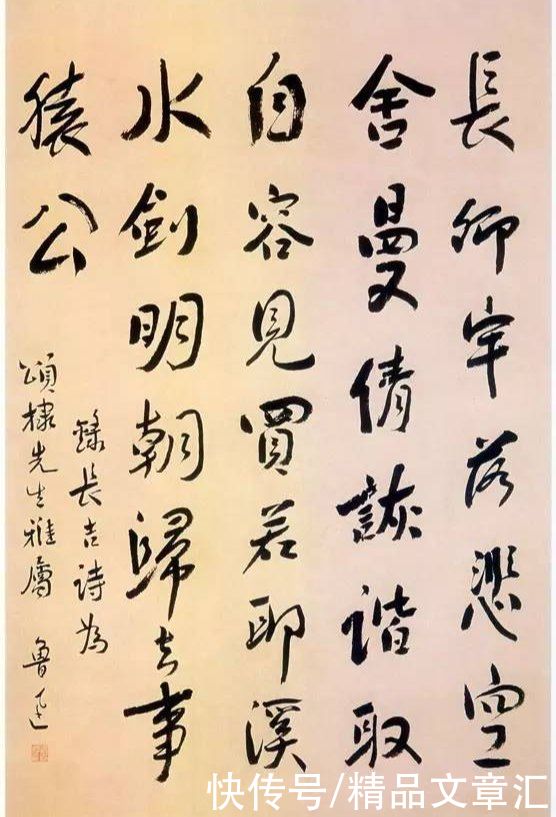 長卿牢落悲空
舍曼倩詼諧取
自容見買若耶溪
水劍明朝歸去事
猿公
錄長吉詩為
頌棣先生雅屬 魯迅
快传号/精品文章汇